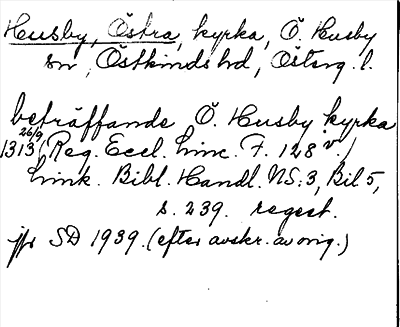 Husby, Östra, kyrka, Ö. Husby
sn, Östkinds hd, Österg. l.
beträffande Ö. Husby kyrka
1313 26/9 (Reg. Eccl. Linc. F. 128 v.)
Link. Bibl. Handl. NS:3, Bil 5,
s. 239. regest.
jfr SD 1939. (efter avskr. av orig.)